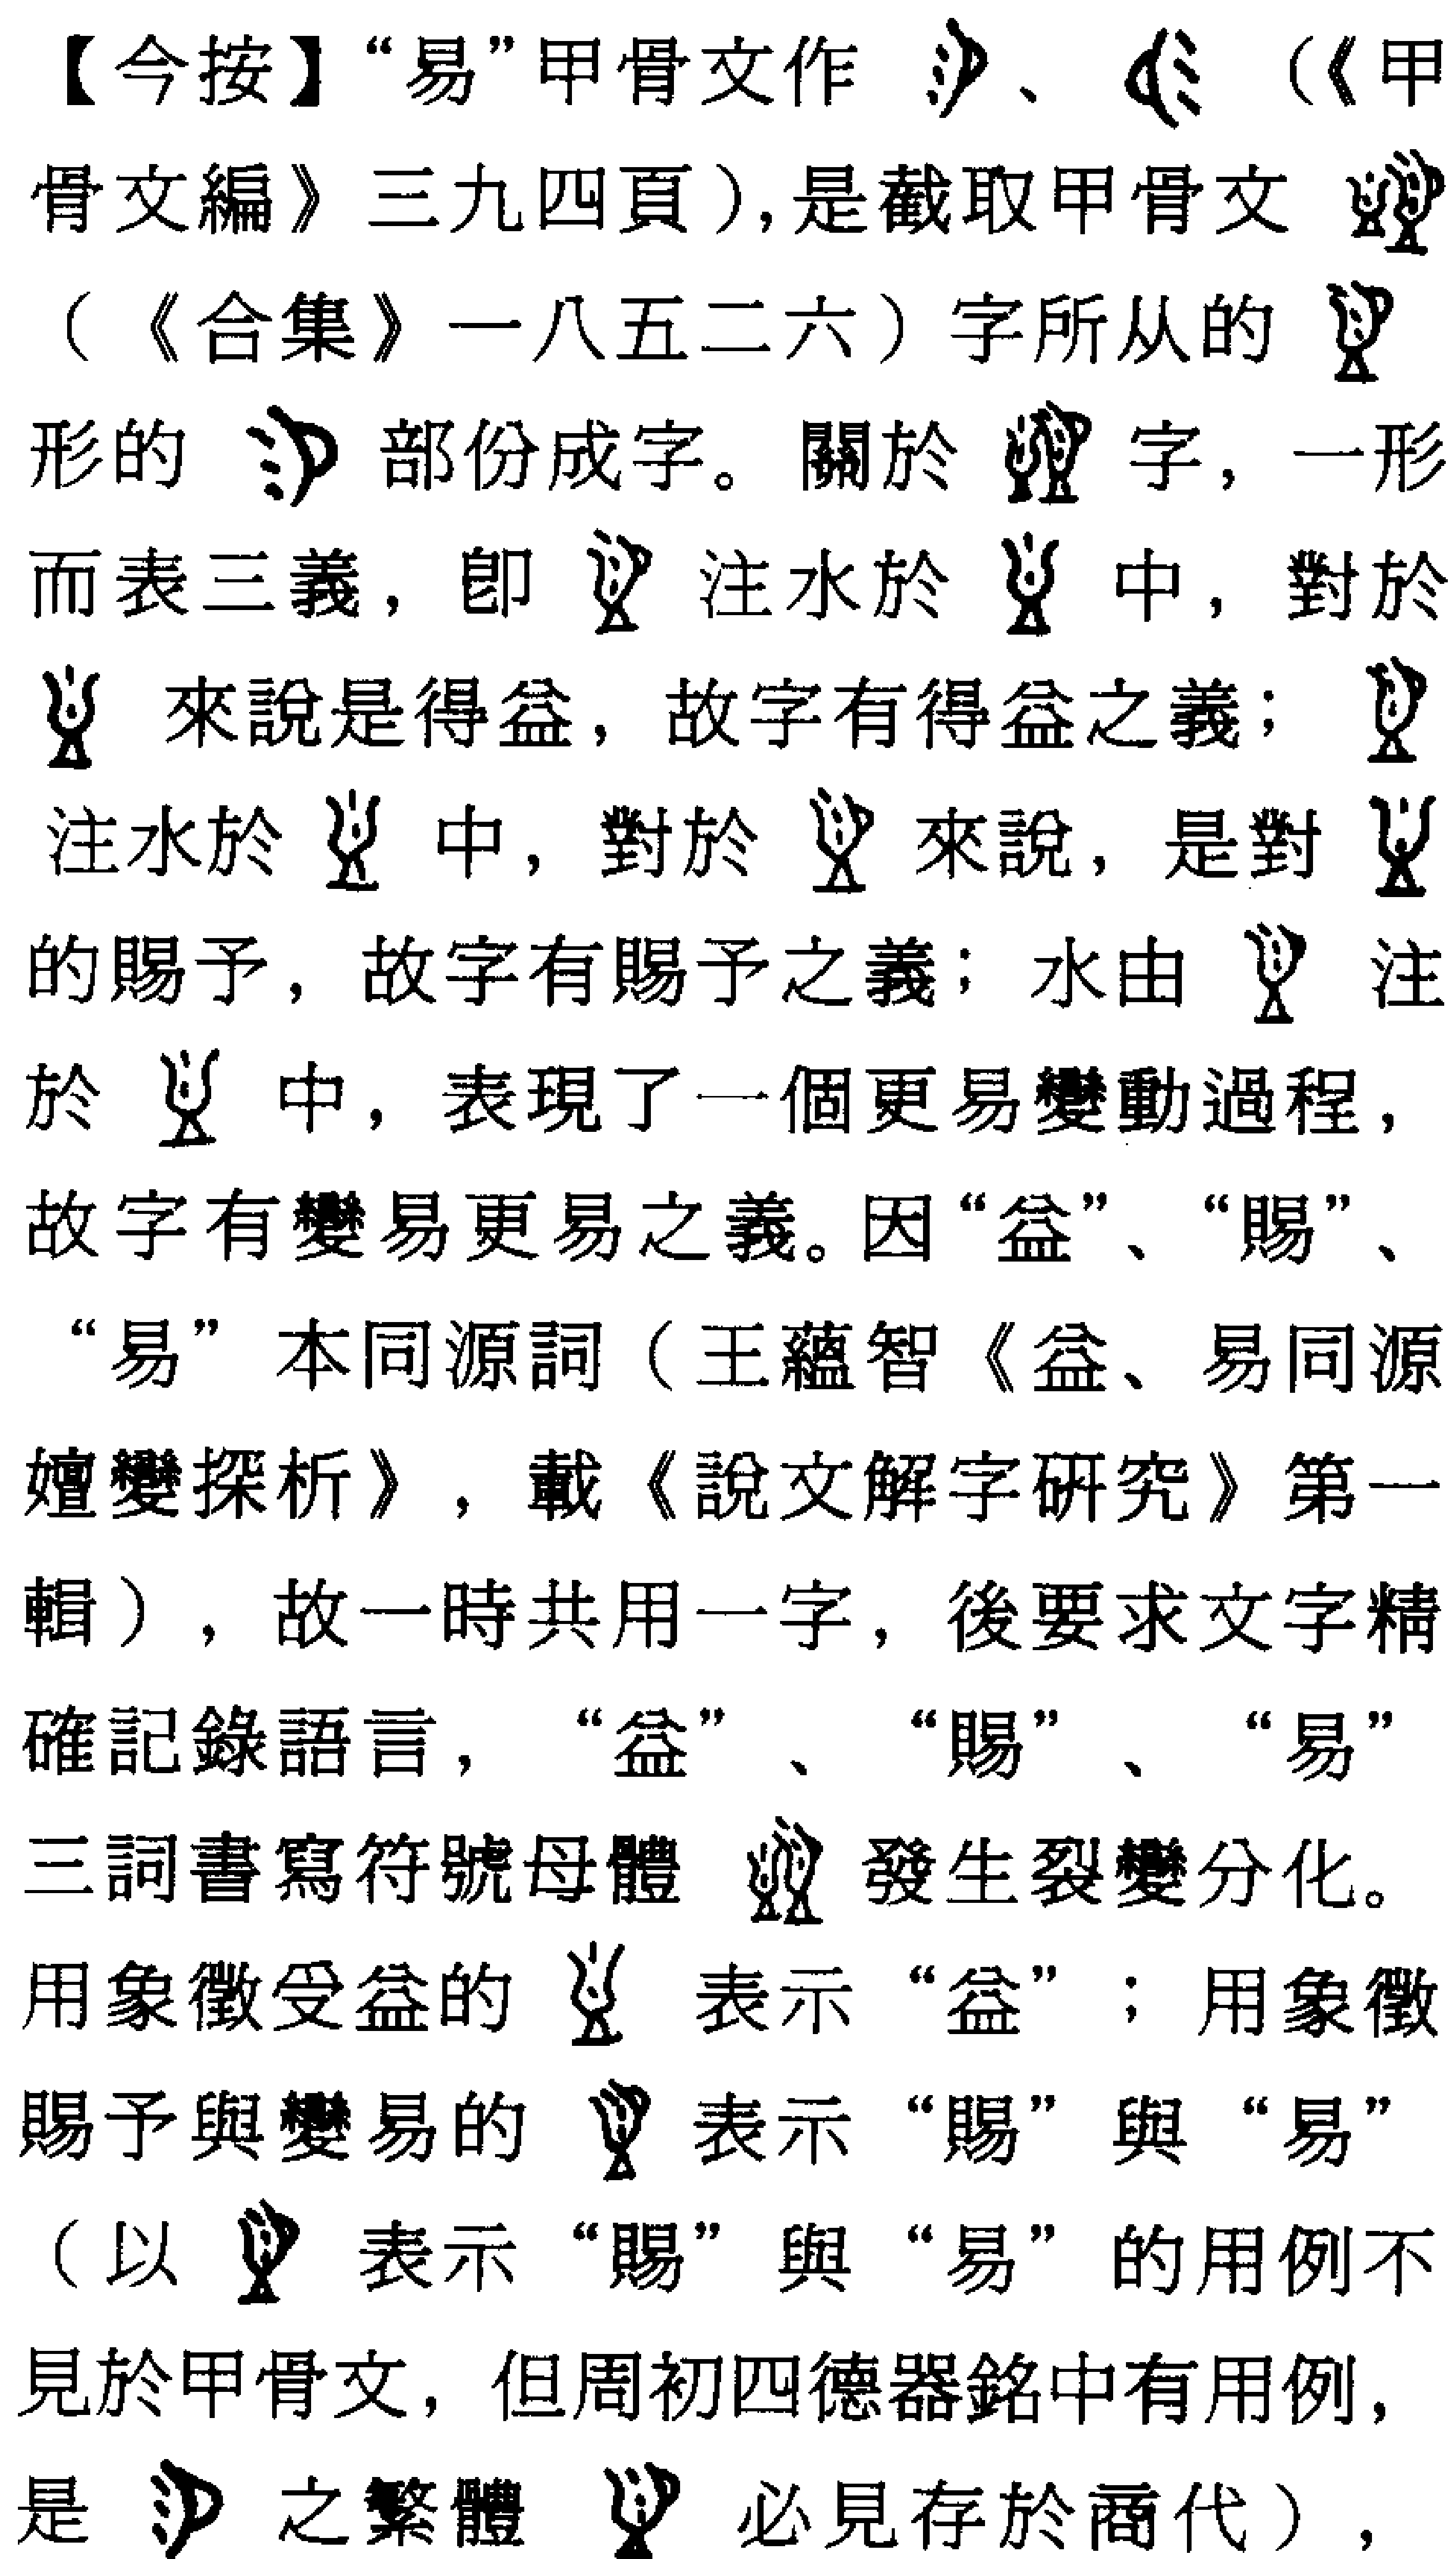 【今按】“易”甲骨文作 、 （《甲
骨文編》三九四頁），是截取甲骨文
（《合集》一八五二六）字所从的
形的 部份成字。關於 字，一形
而表三義，卽 注水於 中，對於
來說是得益，故字有得益之義；
注水於 中，對於 來說，是對
的賜予，故字有賜予之義；水由 注
於 中，表現了一個更易變動過程，
故字有變易更易之義。因“益”、“賜”、
“易”本同源詞（王蘊智《益、易同源
嬗變探析》，載《說文解字研究》第一
輯），故一時共用一字，後要求文字精
確記錄語言，“益”、“賜”、“易”
三詞書寫符號母體 發生裂變分化。
用象徵受益的 表示“益”；用象徵
賜予與變易的 表示“賜”與“易”
（以 表示“賜”與“易”的用例不
見於甲骨文，但周初四德器銘中有用例，
是 之繁體 必見存於商代），